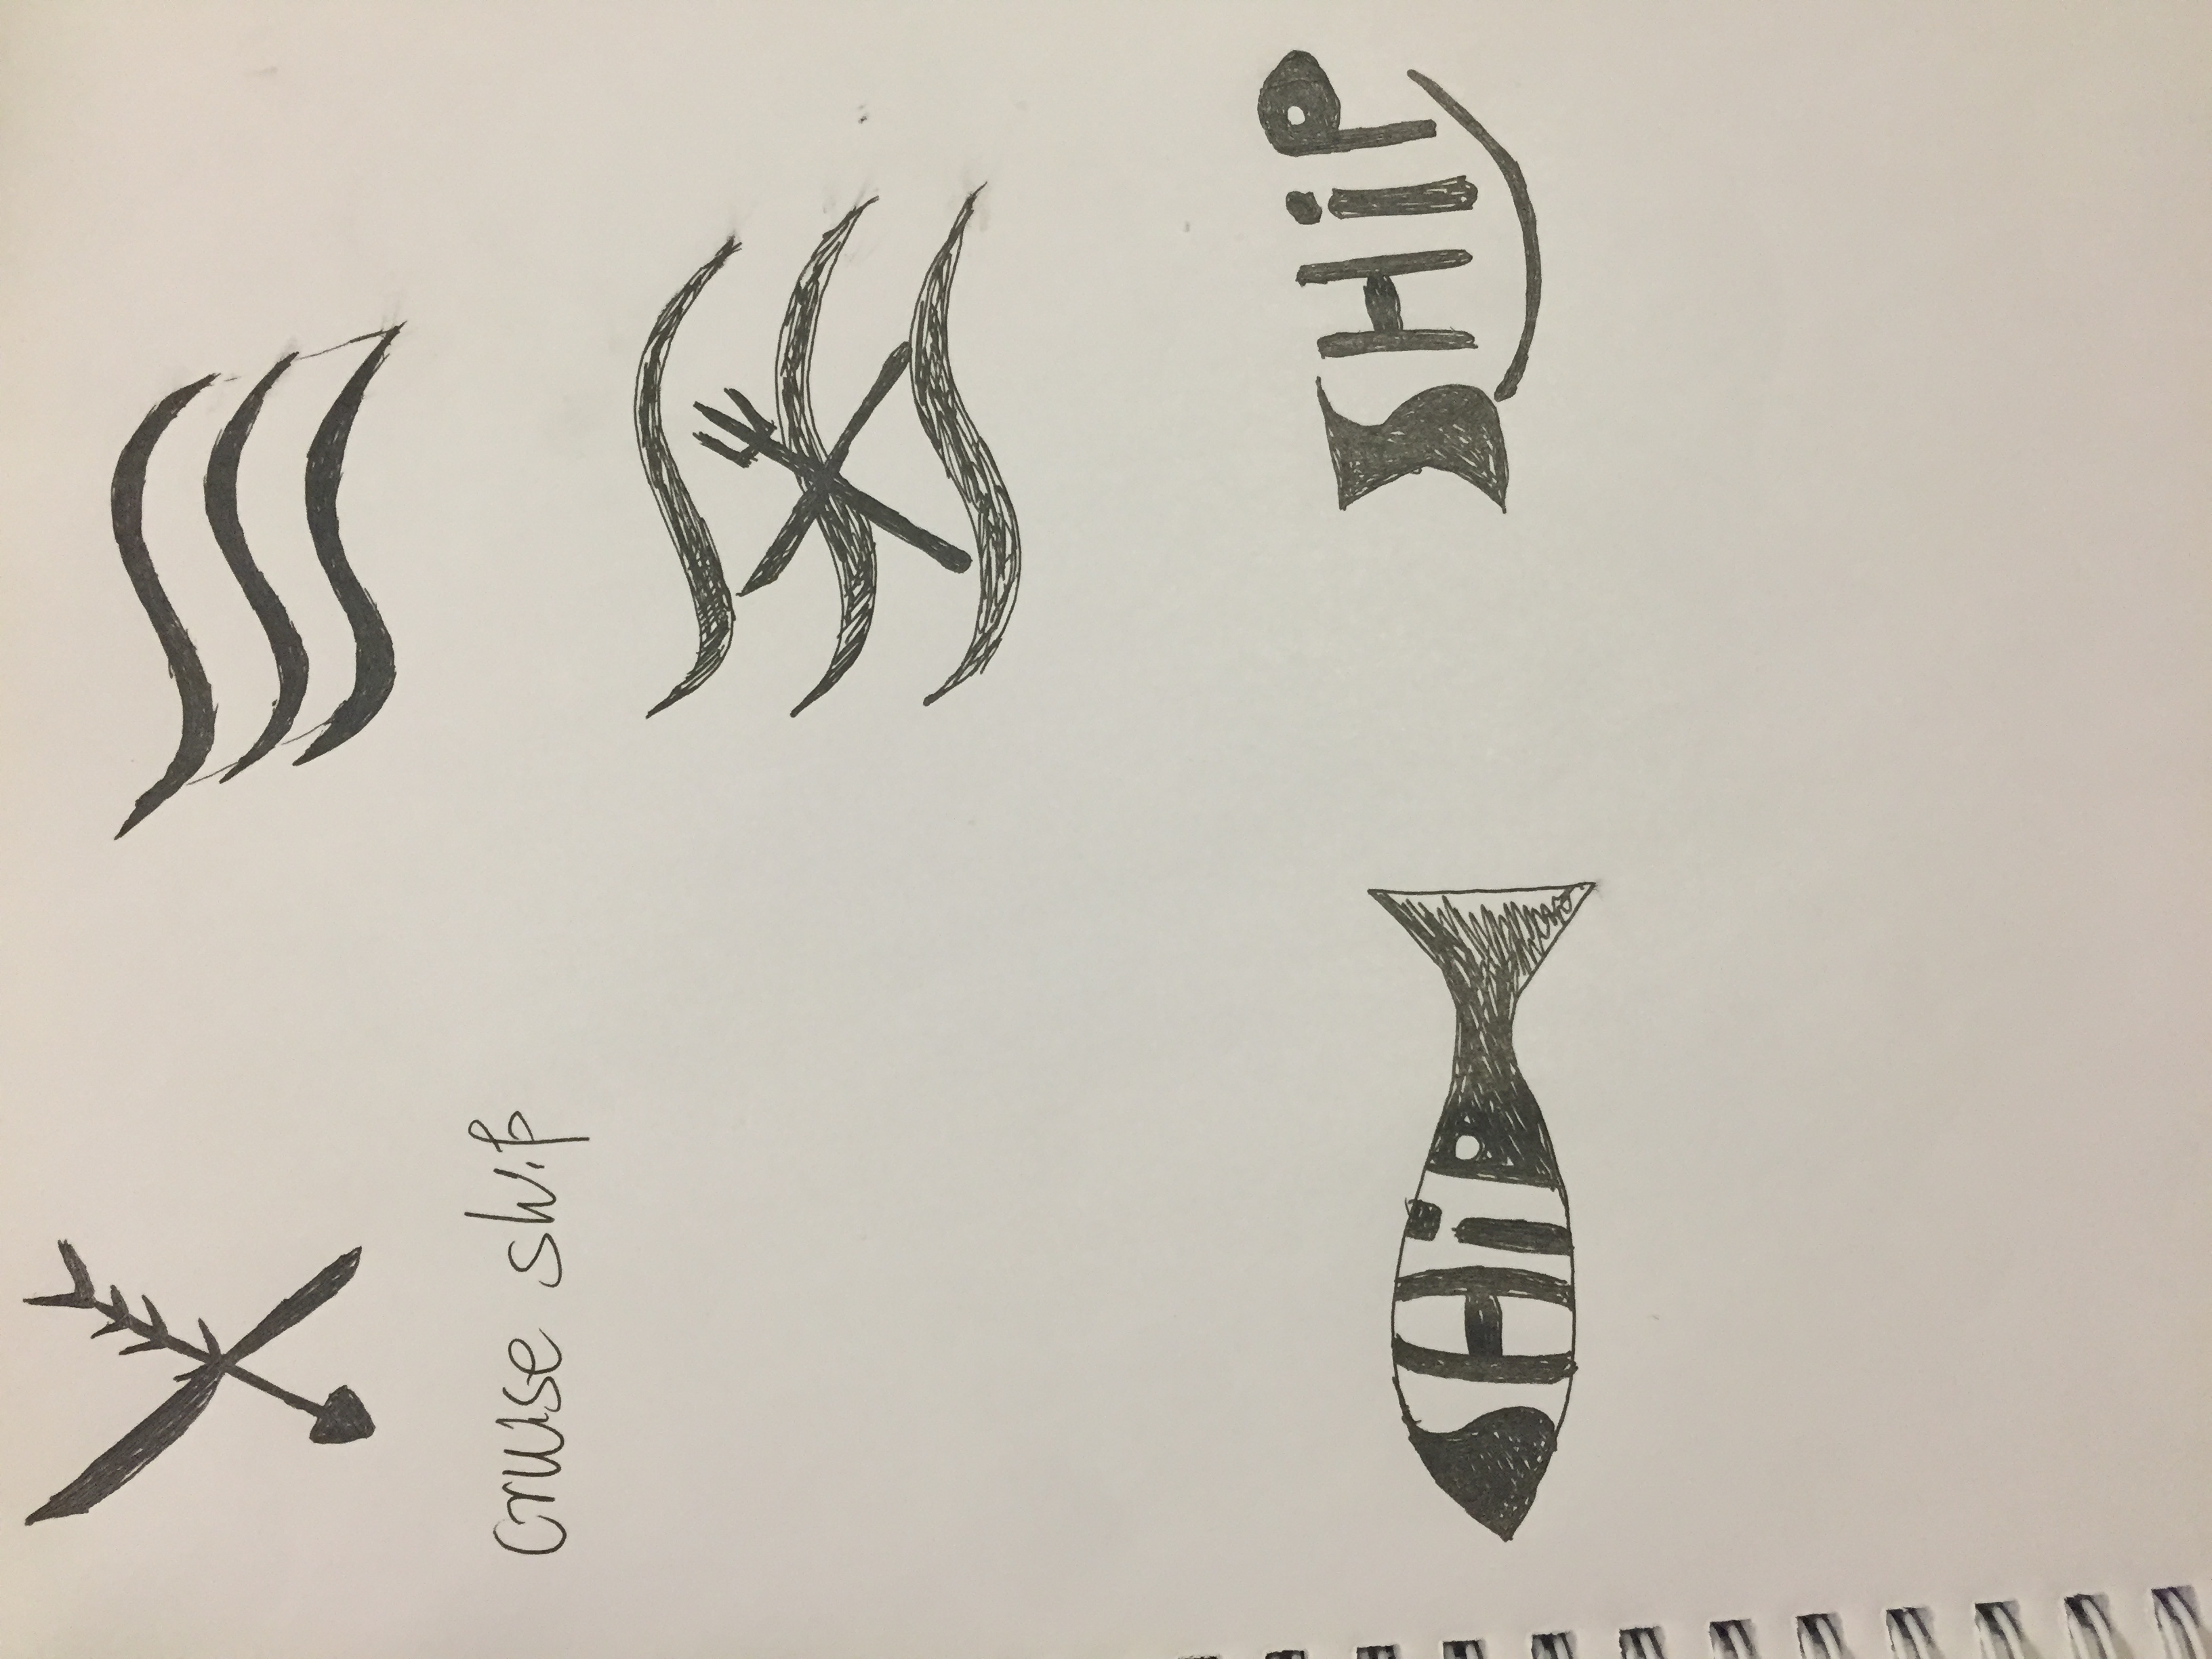 cruise ship
SHiP
SHiP